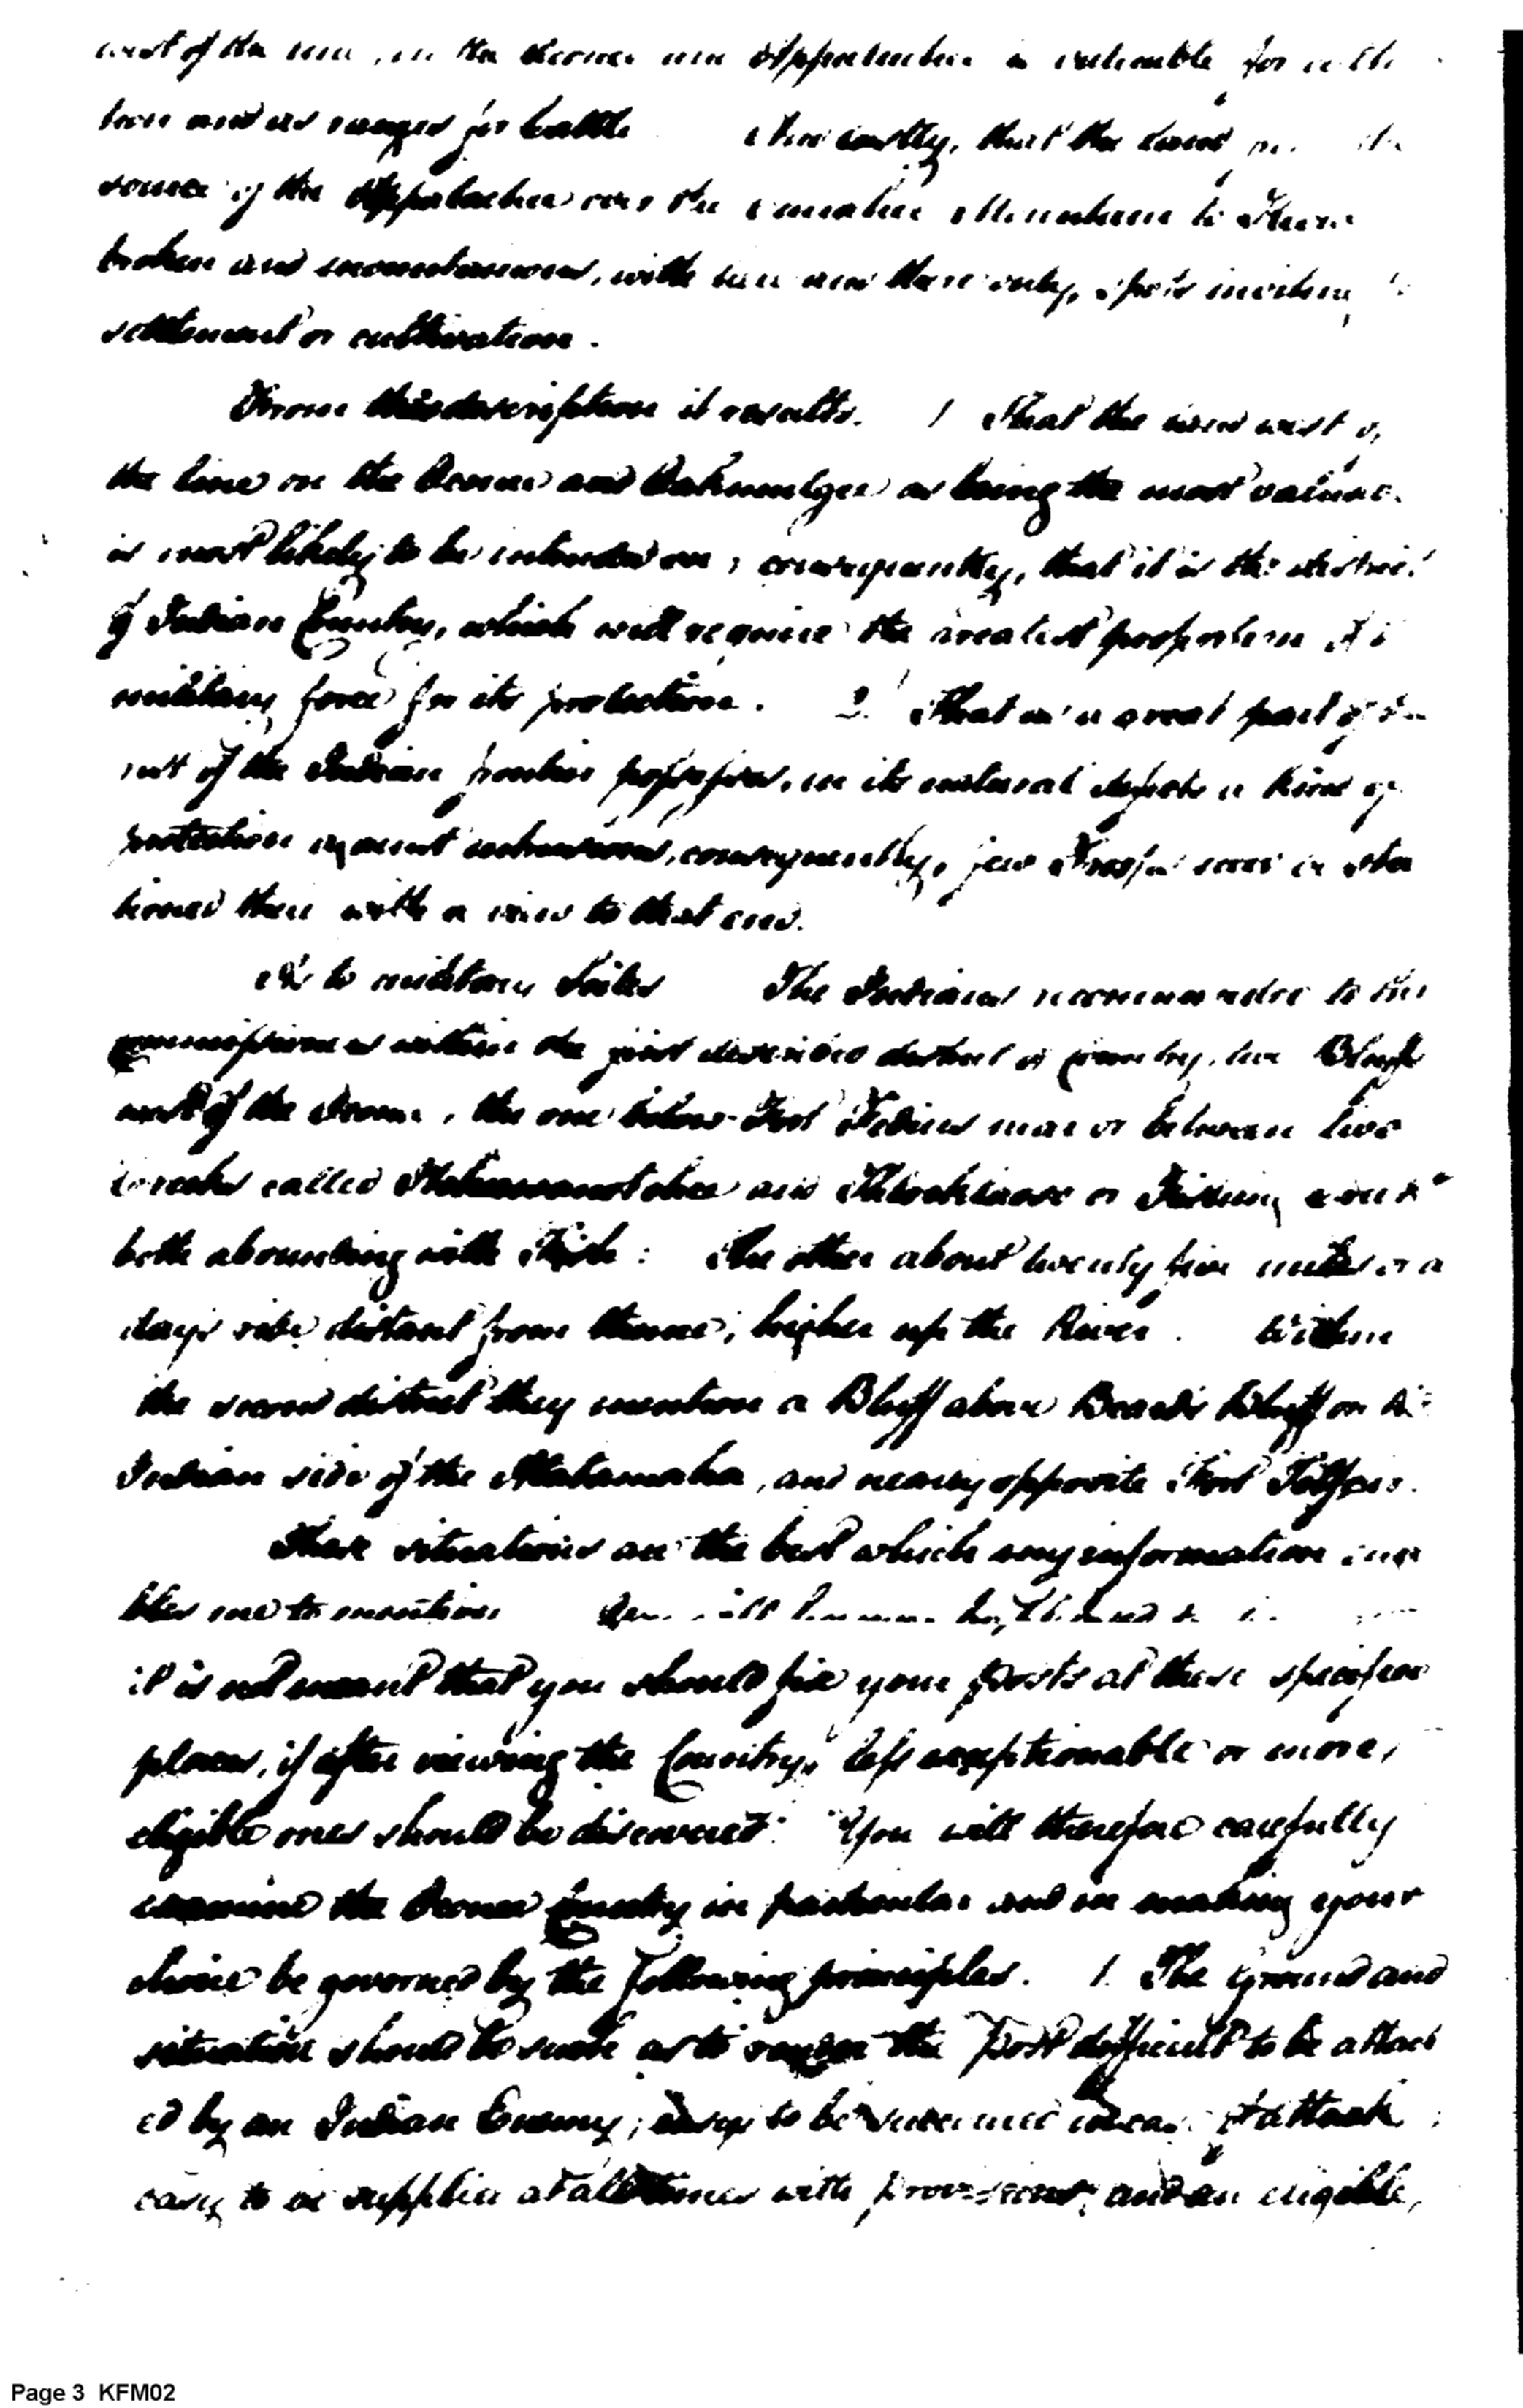 west of the line, on the Oconee and Appalachee is valuable for
and as ranges for Cattle And lastly, that the land
source of the Appalachee over the Currahee Mountain to
broken and mountainous, with here and there only, spots inviting
settlement or cultivation.
From this description it results. 1 That the land west of
the line on the Oconee and Oakmulgee as being the most
is most likely to be intruded on, consequently, that it is the district
of Indian Country, which will require the greatest proportion of
military force for its protection. 2. That a great part of the
rest of the Indian frontier possesses, in its natural defects a kind of
protection against intrusions, consequently, few Troops need be sta
tioned there with a view to that end.
As to military Scites The Indians recommended to the
Commissioners within the first described district of Country, two Bluffs
west of the Oconee, the one below Fort Fidius near or between two
Creeks called and or Fishing Creek
both abounding with Fish: the other about twenty five miles or a
days ride distant from thence, higher up the River. Within
the second district they mention a Bluff above Beards Bluff on the
Indian side of the Alatamaha, and nearly opposite Fort
These situations are the best which my information ena
bles me to mention
it is not meant that you should fix your posts at these specified
places, if after viewing the Country, less exceptionable or more,
eligible ones should be discovered. You will therefore carefully
examine the Oconee Country in particular and in making your
choice be governed by the following principles. 1. The Ground and
situation should be such as to render the Post difficult to be attack
ed by an Indian Enemy; easy to be succoured in case of attack;
easy to be supplied at all times with provisions; and an eligible,
Page 3 KFM02